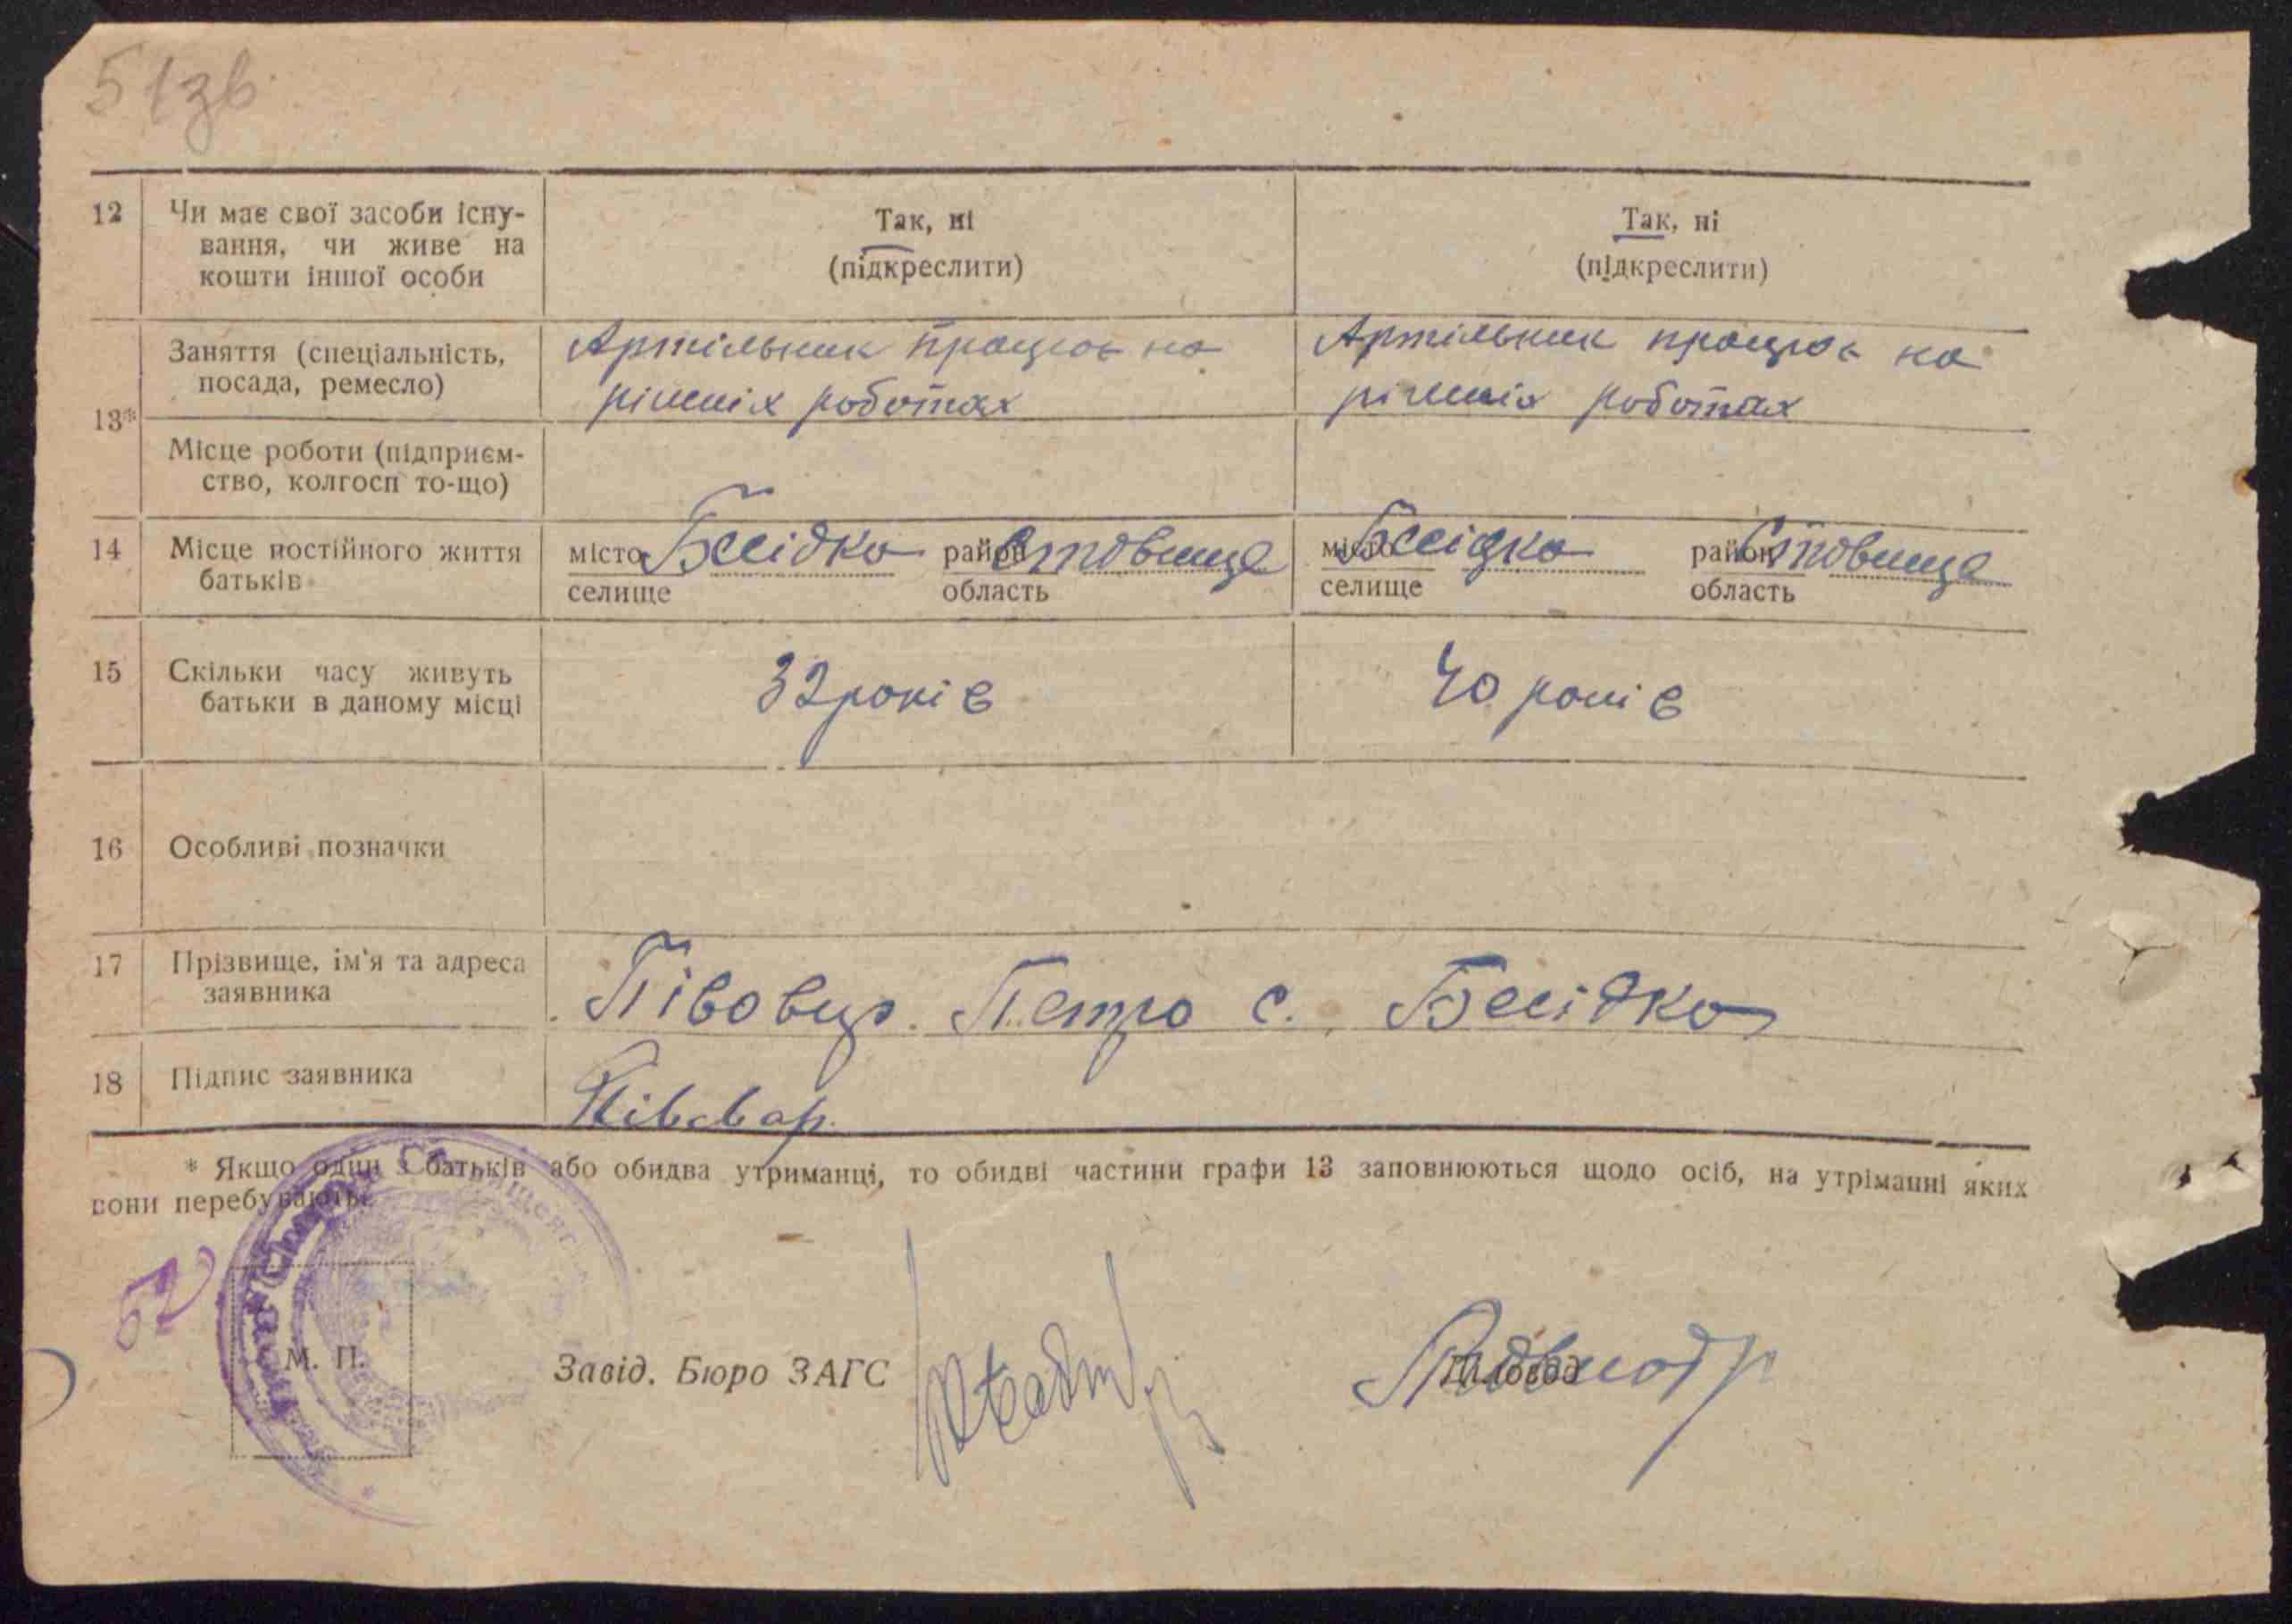 51зв
12 Чи має свої засоби існу- Так, ні Так, ні
вання, чи живе на (підкреслити) (підкреслити)
кошти іншої особи
13* Заняття (спеціальність, Артільник працює на Артільник працює на
посада, ремесло) ріжніх роботах ріжніх роботах
Місце роботи (підприєм-
ство, колгосп то-що)
14 Місце постійного життя місто Бесідка район Ставище місто Бесідка район Ставище
батьків селище область селище область
15 Скільки часу живуть 32 років 40 років
батьки в даному місці
16 Особливі позначки
17 Прізвище, ім'я та адреса Півовар Петро с. Бесідка
заявника
18 Підпис заявника Півовар
* Якщо один з батьків або обидва утриманці, то обидві частини графи 13 заповнюються щодо осіб, на утріманні яких
вони перебувають.
52
М. П. Завід. Бюро ЗАГС Діловод